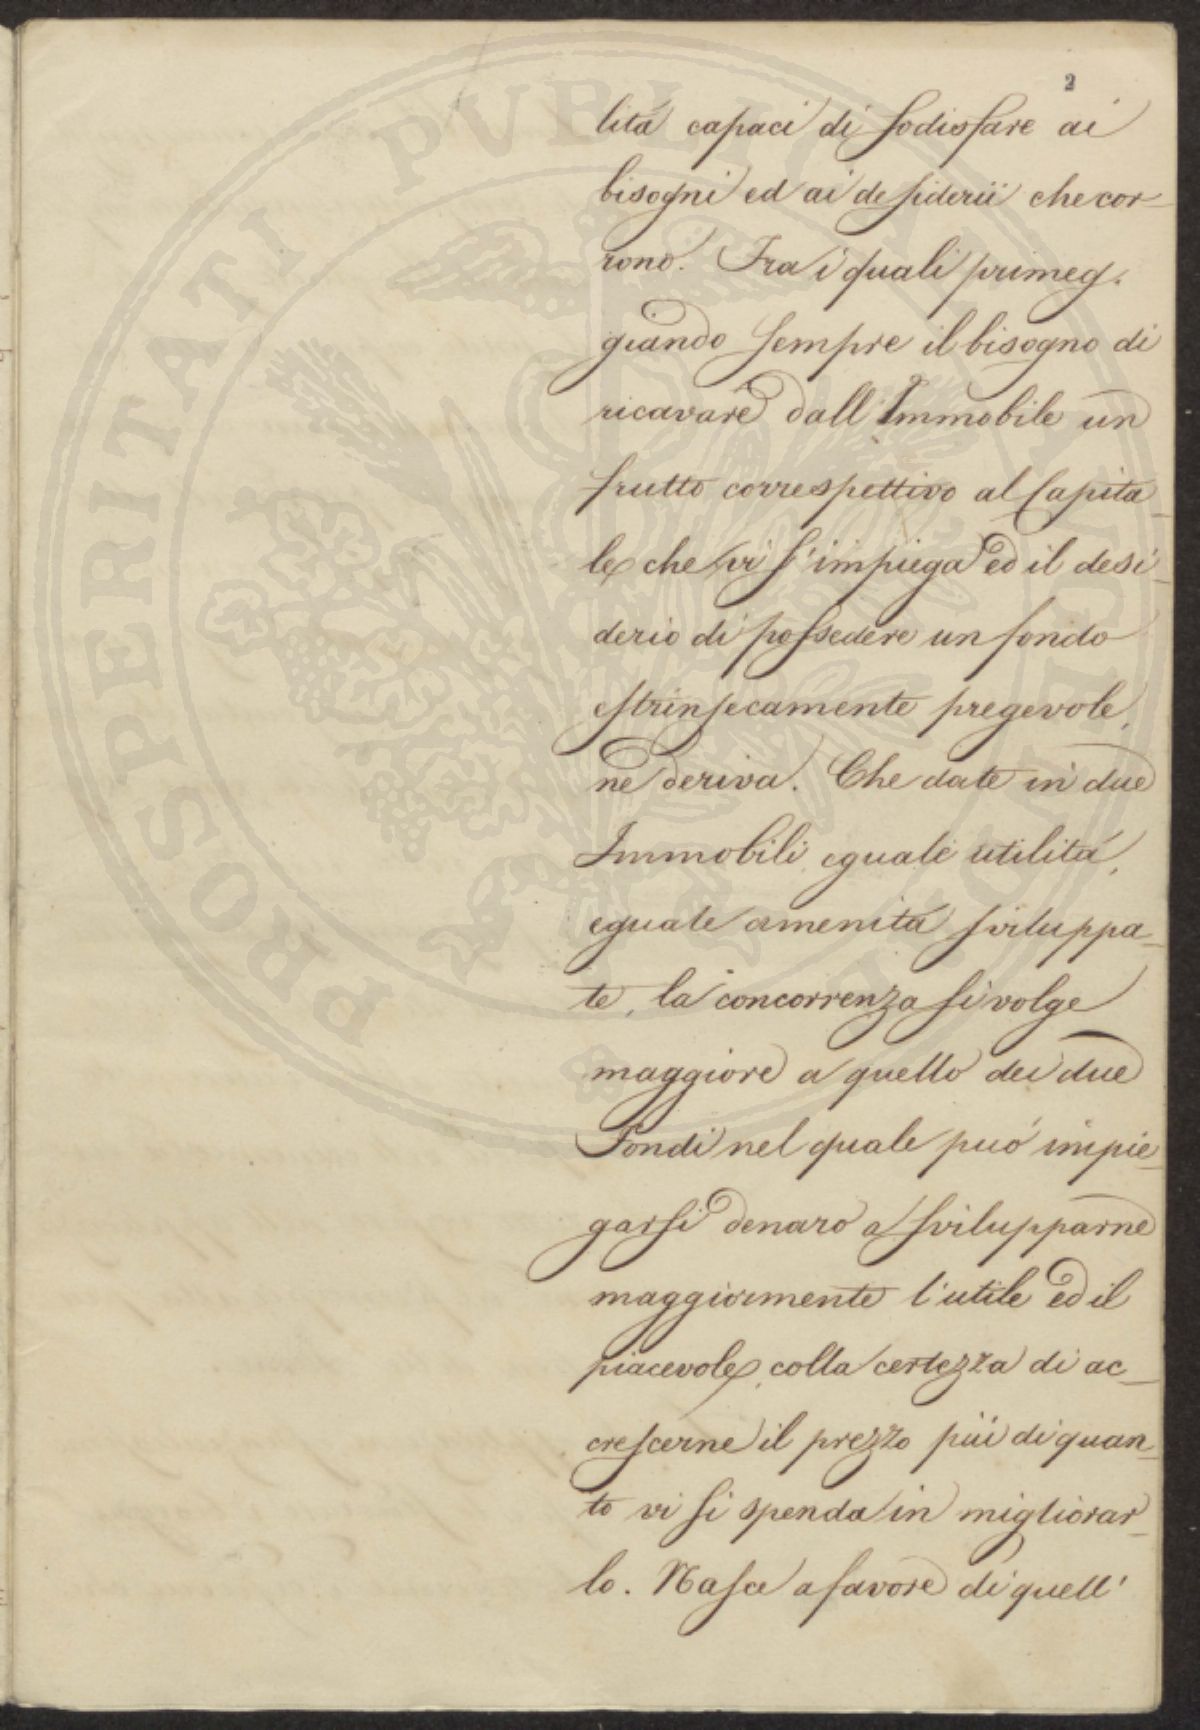 2
lità capaci di sodisfare ai
bisogni ed ai desiderii che cor-
rono. Fra i quali primeg-
giando sempre il bisogno di
ricavare dall'Immobile un
frutto correspettivo al Capita-
le che vi s'impiega ed il desi-
derio di possedere un fondo
estrinsecamente pregevole,
ne deriva. Che date in due
Immobili eguale utilità,
eguale amenità sviluppa-
te, la concorrenza si volge
maggiore a quello dei due
Fondi nel quale può impie-
garsi denaro a svilupparne
maggiormente l'utile ed il
piacevole, colla certezza di ac-
crescerne il prezzo più di quan-
to vi si spenda in migliorar-
lo. Nasce a favore di quell'
PROSPERITATI PUBLICAE